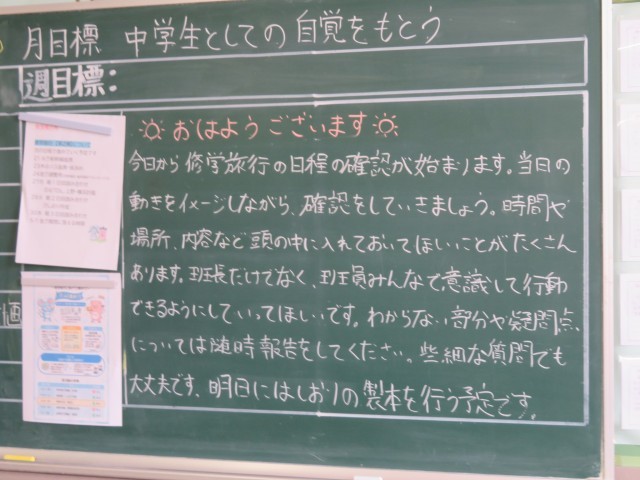 月目標 中学生としての自覚をもとう
週目標:
おはようございます
今日から修学旅行の日程の確認が始まります。当日の
動きをイメージしながら、確認をしていきましょう。時間や
場所、内容など頭の中に入れておいてほしいことがたくさん
あります。班長だけでなく、班員みんなで意識して行動
できるようにしていってほしいです。わからない部分や疑問点
については随時報告をしてください。些細な質問でも
大丈夫です、明日にはしおりの製本を行う予定です。